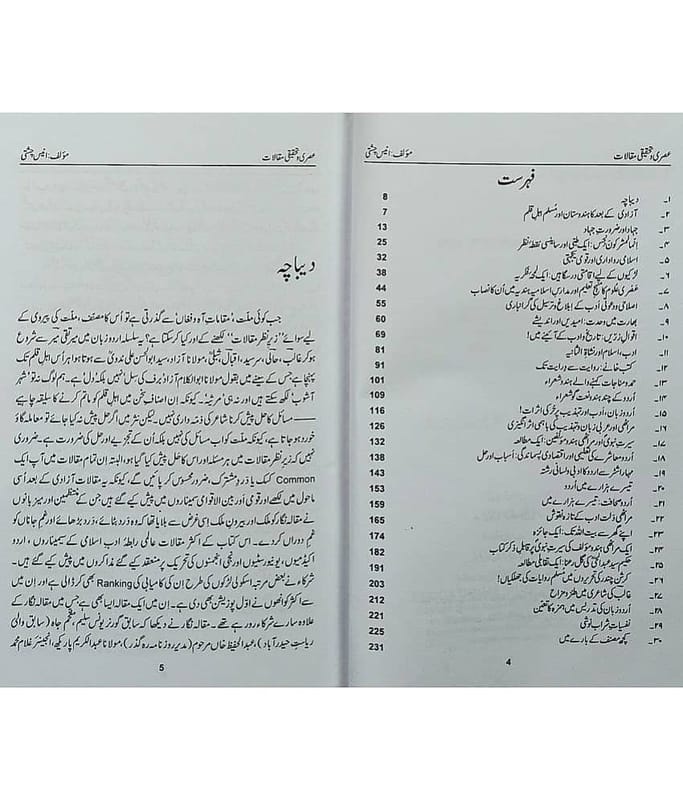 عصری و تحقیقی مقالات
مؤلف: انیس چشتی
فہرست
۱۔ دیباچہ 8
۲۔ آزادی کے بعد کا ہندوستان اور مسلم اہلِ قلم 7
۳۔ جہاد اور ضرورتِ جہاد 13
۴۔ انما المشرکون نجس: ایک طبی اور سائنسی نقطۂ نظر 25
۵۔ اسلامی رواداری اور قومی یکجہتی 32
۶۔ لڑکیوں کے لیے اقامتی درسگاہیں: ایک لمحۂ نظریہ 38
۷۔ عصری علوم کا منہج تعلیم اور مدارس اسلامیہ ہند میں اُن کا نصاب 44
۸۔ اصلاحی و دعوتی اَدب کے ابلاغ و ترسیل کی گرانباری 55
۹۔ بھارت میں وحدت: امیدیں اور اندیشے 60
۱۰۔ اقوالِ زرّیں: تاریخ و ادب کے آئینے میں! 69
۱۱۔ ادب، اسلام اور نشاۃِ الثانیہ 81
۱۲۔ کتب خانے: روایت سے روایت تک 91
۱۳۔ حمد و مناجات کہنے والے ہندو شعراء 101
۱۴۔ اُردو کے چند ہندو نعت گو شعراء 109
۱۵۔ اُردو زبان، اَدب اور تہذیب پر برجی اثرات! 116
۱۶۔ مراٹھی اور عربی زبان و تہذیب کی باہمی اثر انگیزی 126
۱۷۔ سیرت نبویؐ اور مراٹھی ہندو مؤلفین: ایک مطالعہ 132
۱۸۔ اُردو معاشرے کی تعلیمی اور اقتصادی پسماندگی: اسباب اور حل 138
۱۹۔ مہاراشٹر سے اردو کا ادبی و لسانی رشتہ 143
۲۰۔ تیسرے ہزارے میں اُردو 153
۲۱۔ اُردو صحافت: تیسرے ہزارے میں 159
۲۲۔ مراٹھی دلت ادب کے تازہ نقوش 165
۲۳۔ اپنے گھر سے بیت اللہ تک: ایک جائزہ 174
۲۴۔ ایک مراٹھی ہندو مؤلف کی سیرت نبویؐ پر قابلِ ذکر کتاب 182
۲۵۔ حکیم سید عبدالحئی کی گل رعنا: ایک تقابلی مطالعہ 191
۲۶۔ کرشن چندر کی تحریروں میں مسلم روایات کی جھلکیاں! 203
۲۷۔ غالب کی شاعری میں طنز و مزاح 212
۲۸۔ اُردو زبان کی تدریس میں ہمزہ کا تعین 221
۲۹۔ نفسیاتِ شراب نوشی 225
۳۰۔ کچھ مصنف کے بارے میں 231
4
عصری و تحقیقی مقالات
مؤلف: انیس چشتی
دیباچہ
جب کوئی ملّت، مُقاماتِ آہ و فغاں سے گذرتی ہے تو اُس کا مصنف، ملّت کی پیروی کے
لیے سوائے "زیرِ نظر مقالات" لکھنے کے اور کیا کر سکتا ہے؟ یہ سلسلہ اردو زبان میں میر تقی میر سے شروع
ہو کر غالب، حالی، سرسید، اقبال، شبلی، مولانا آزاد، سید ابوالحسن علی ندوی سے ہوتا ہوا ہر اُس اہلِ قلم تک
پہنچا ہے جس کے سینے میں بقول مولانا ابوالکلام آزاد برف کی سل نہیں بلکہ دل ہے۔ ہم لوگ نہ تو 'شہر
آشوب' لکھ سکتے ہیں اور نہ ہی 'مرثیہ'۔ کیونکہ اِن اصنافِ سخن میں اہلِ قلم کو ماتم کرنے کا سلیقہ چاہیے
— مسائل کا حل پیش کرنا شاعر کی ذمّہ داری نہیں۔ لیکن نثر میں اگر حل پیش نہ کیا جائے تو معاملہ گاؤ
خورد ہو جاتا ہے، کیونکہ ملّت کو اب مسائل کی نہیں بلکہ اُن کے تجزیے اور حل کی ضرورت ہے۔ ضروری
نہیں کہ زیرِ نظر مقالات میں ہر مسئلہ اور اس کا حل پیش کیا گیا ہو، البتہ اِن تمام مقالات میں آپ ایک
Common کسک یا دَردِ مشترک، ضرور محسوس کر پائیں گے، کیونکہ یہ مقالات آزادی کے بعد اُسی
ماحول میں لکھے اور قومی اَور بین الاقوامی سیمیناروں میں پیش کیے گئے ہیں جن کے منتظمین اور میزبانوں
نے مقالہ نگار کو ملک اور بیرونِ ملک اِسی غرض سے بلایا تھا کہ وہ دَرد بٹائے، دَرد بڑھائے اور غمِ جاناں کو
غمِ دوراں کردے۔ اس کتاب کے اکثر مقالات عالمی رابطۂ ادبِ اسلامی کے سیمیناروں، اردو
اکیڈمیوں، یونیورسٹیوں اور نجی انجمنوں کی تحریک پر منعقد کیے گئے مذاکروں میں پیش کیے گئے ہیں۔
شرکاء نے بعض مرتبہ اسکولی لڑکوں کی طرح اِن کی کامیابی کی Ranking بھی کر ڈالی ہے اور اِن میں
سے اکثر کو انھوں نے اوّل پوزیشن بھی دی ہے۔ اِن میں ایک مقالہ ایسا بھی ہے جس میں مقالہ نگار کے
علاوہ سارے شرکاء رو رہے تھے۔ مقالہ نگار نے دیکھا کہ سابق گورنر یونس سلیم، مفخم جاہ (سابق والی
ریاستِ حیدرآباد)، عبدالحفیظ خاں مرحوم (مدیر روزنامہ رہ گذر)، مولانا عبدالکریم پاریکھ، انجینئر غلام محمد
5